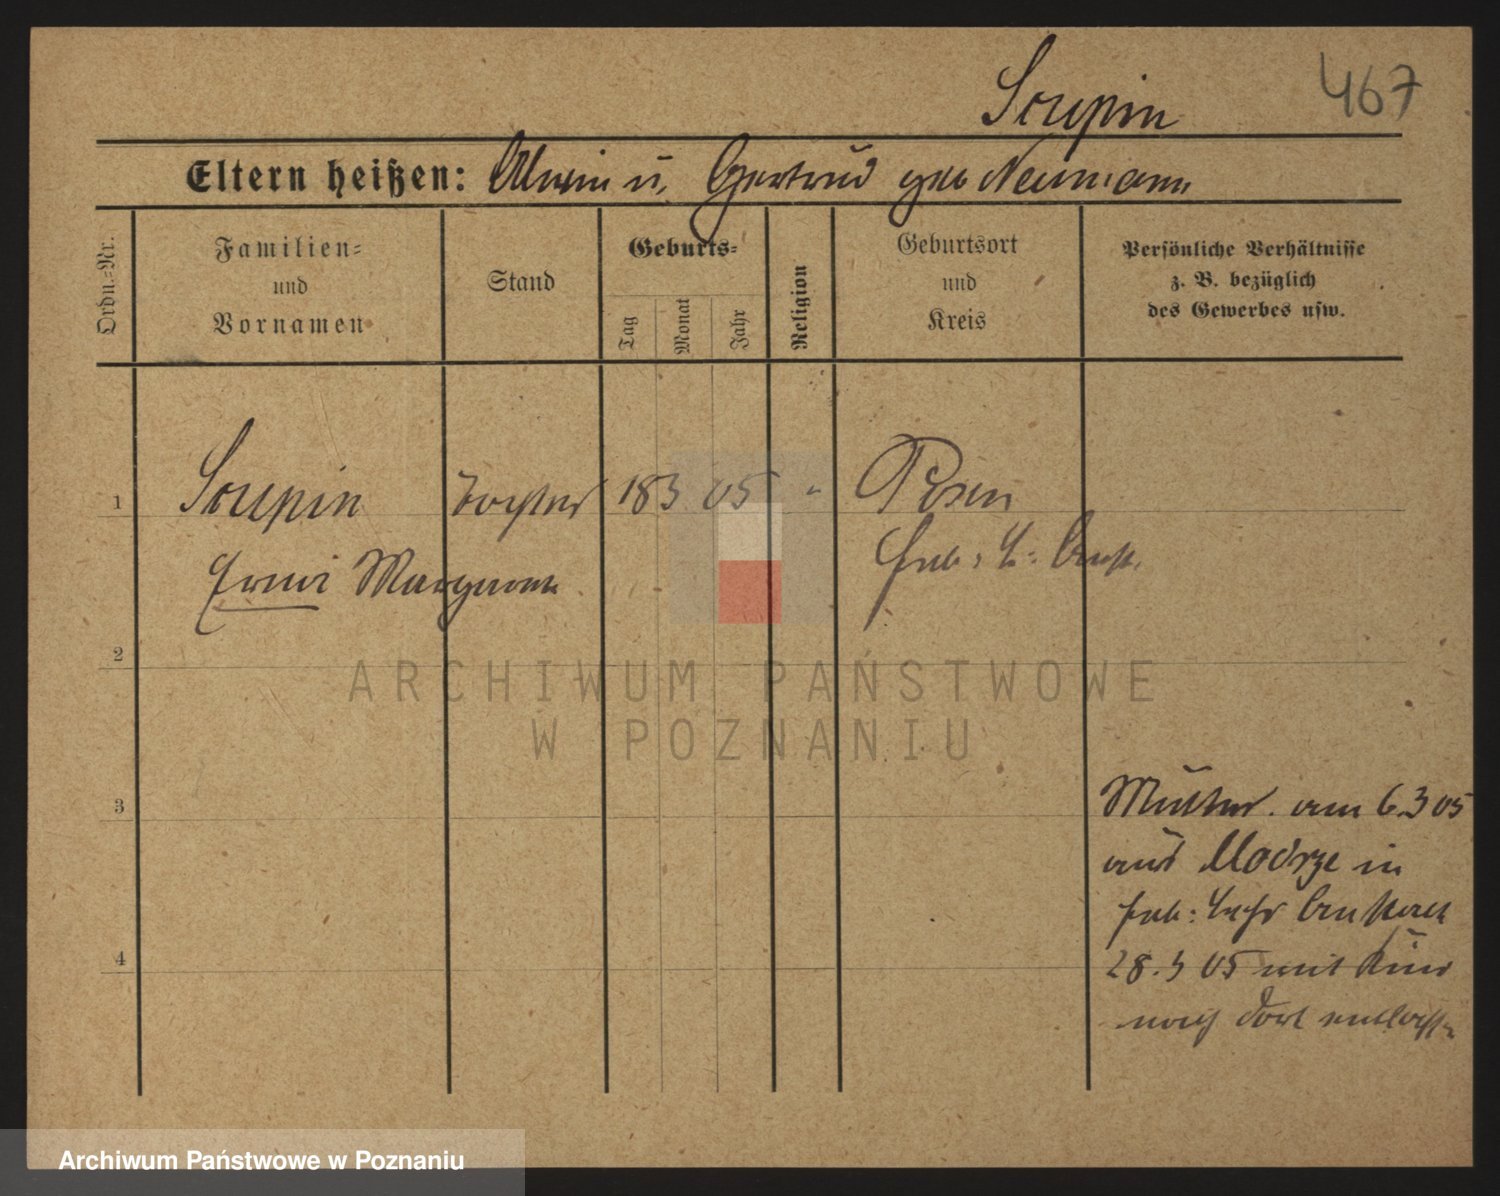 467
Scupin
Eltern heißen: Alwin u. Gertrud geb Neumann
Ordn.-Nr.
Familien-
und
Vornamen
Stand
Geburts-
Tag
Monat
Jahr
Religion
Geburtsort
und
Kreis
Persönliche Verhältnisse
z. B. bezüglich
des Gewerbes usw.
1
Scupin
Tochter
18 3 05
"
Posen
Erni Margarete
Heb: L: Anst.
2
ARCHIWUM PAŃSTWOWE
W POZNANIU
3
Mutter. am 6.3 05
aus Modrze in
Heb: Lehr Anstalt
4
28.3 05 mit Kind
nach dort entlassen
Archiwum Państwowe w Poznaniu